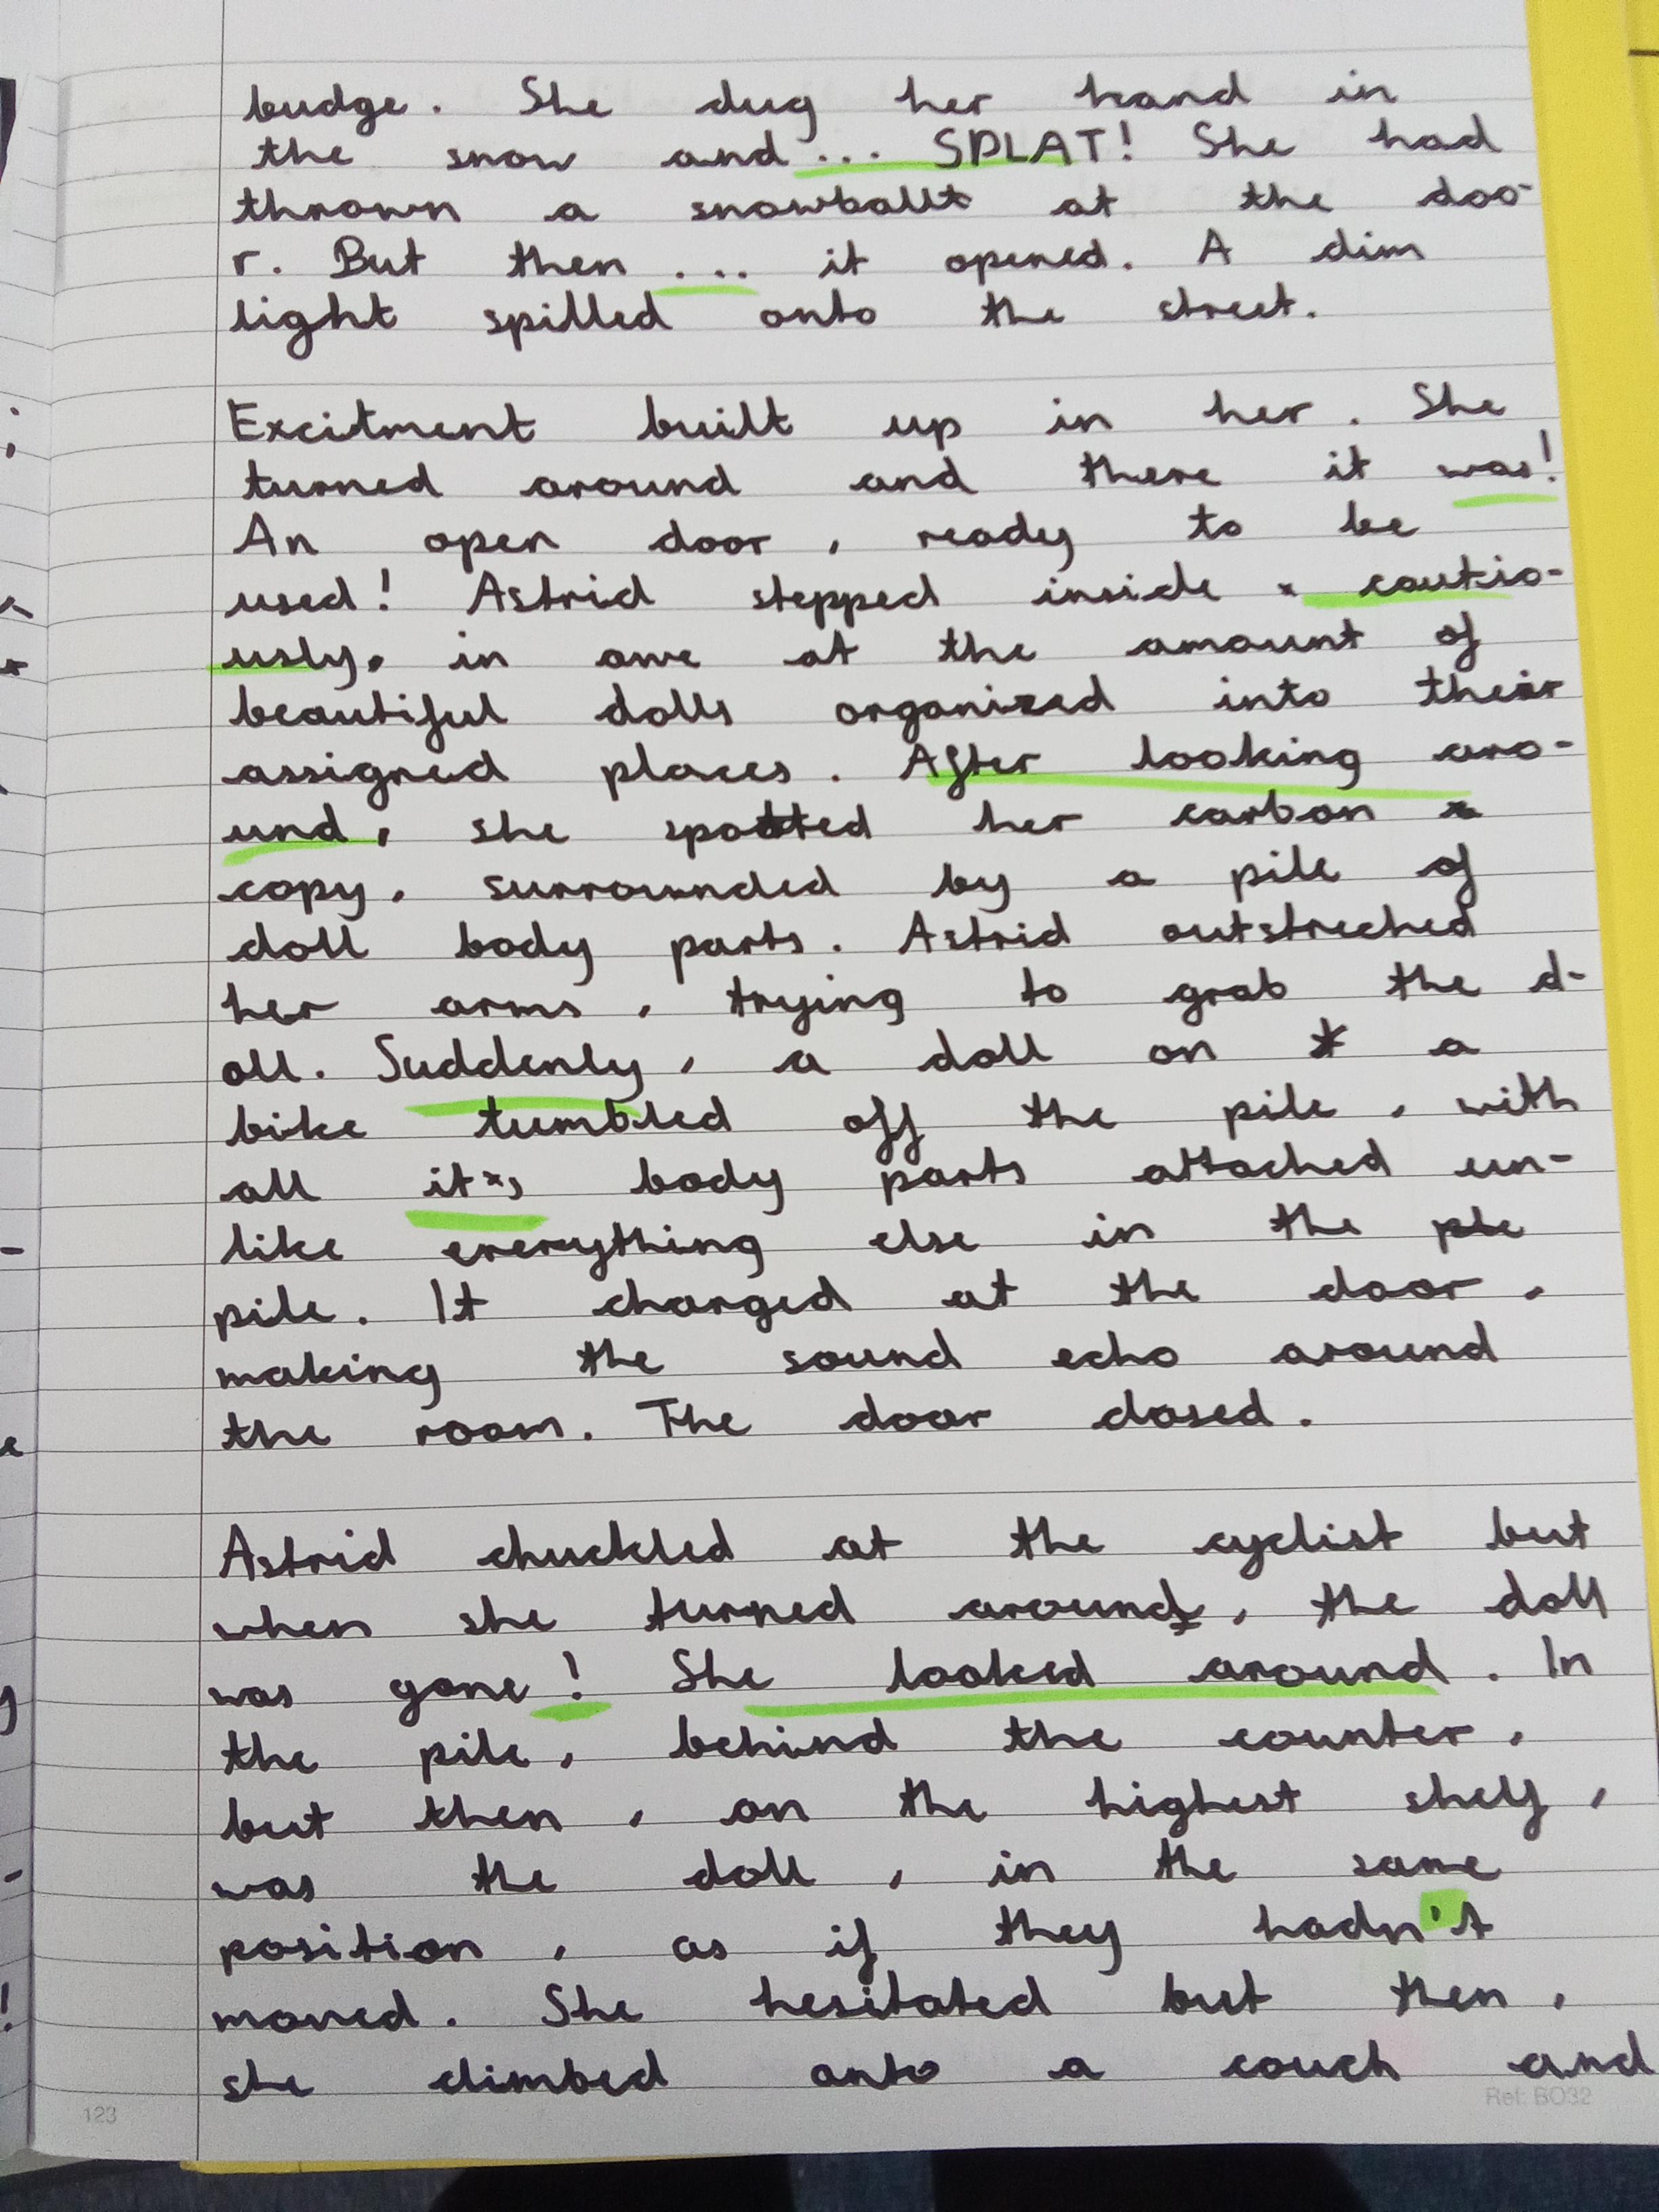 budge. She dug her hand in
the snow and... SPLAT! She had
thrown a snowball at the doo-
r. But then ... it opened. A dim
light spilled onto the street.
Excitment built up in her. She
turned around and there it was!
An open door, ready to be
used! Astrid stepped inside cautio-
usly, in awe at the amount of
beautiful dolls organized into their
assigned places. After looking aro-
und, she spotted her carbon
copy, surrounded by a pile of
doll body parts. Astrid outstreched
her arms, trying to grab the d-
oll. Suddenly, a doll on a
bike tumbled off the pile, with
all its body parts attached un-
like everything else in the
pile. It charged at the door,
making the sound echo around
the room. The door closed.
Astrid chuckled at the cyclist but
when she turned around, the doll
was gone! She looked around. In
the pile, behind the counter,
but then, on the highest shelf,
was the doll, in the same
position, as if they hadn't
moved. She hesitated but then,
she climbed onto a couch and
123
Ref: BO32